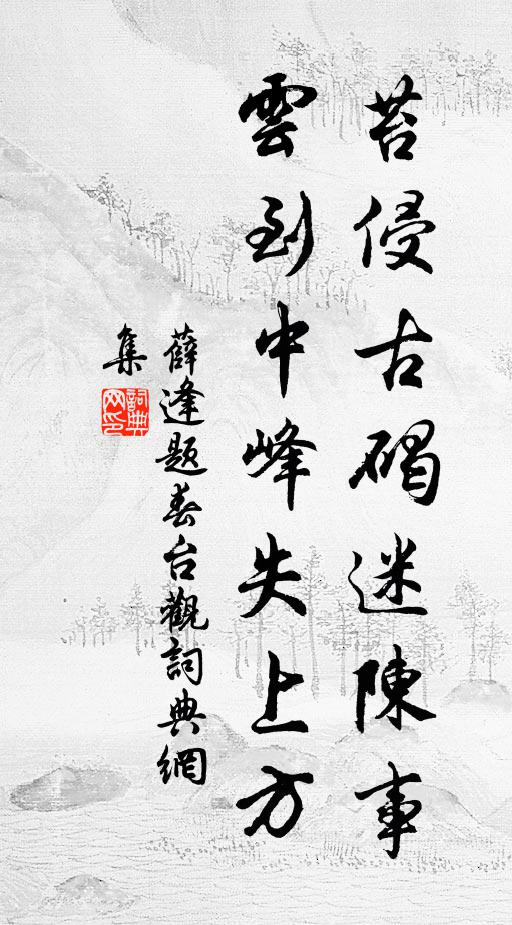 苔侵古碣迷陳事
雲到中峰失上方
薛逢題春台觀詞典網
集
詞典網印